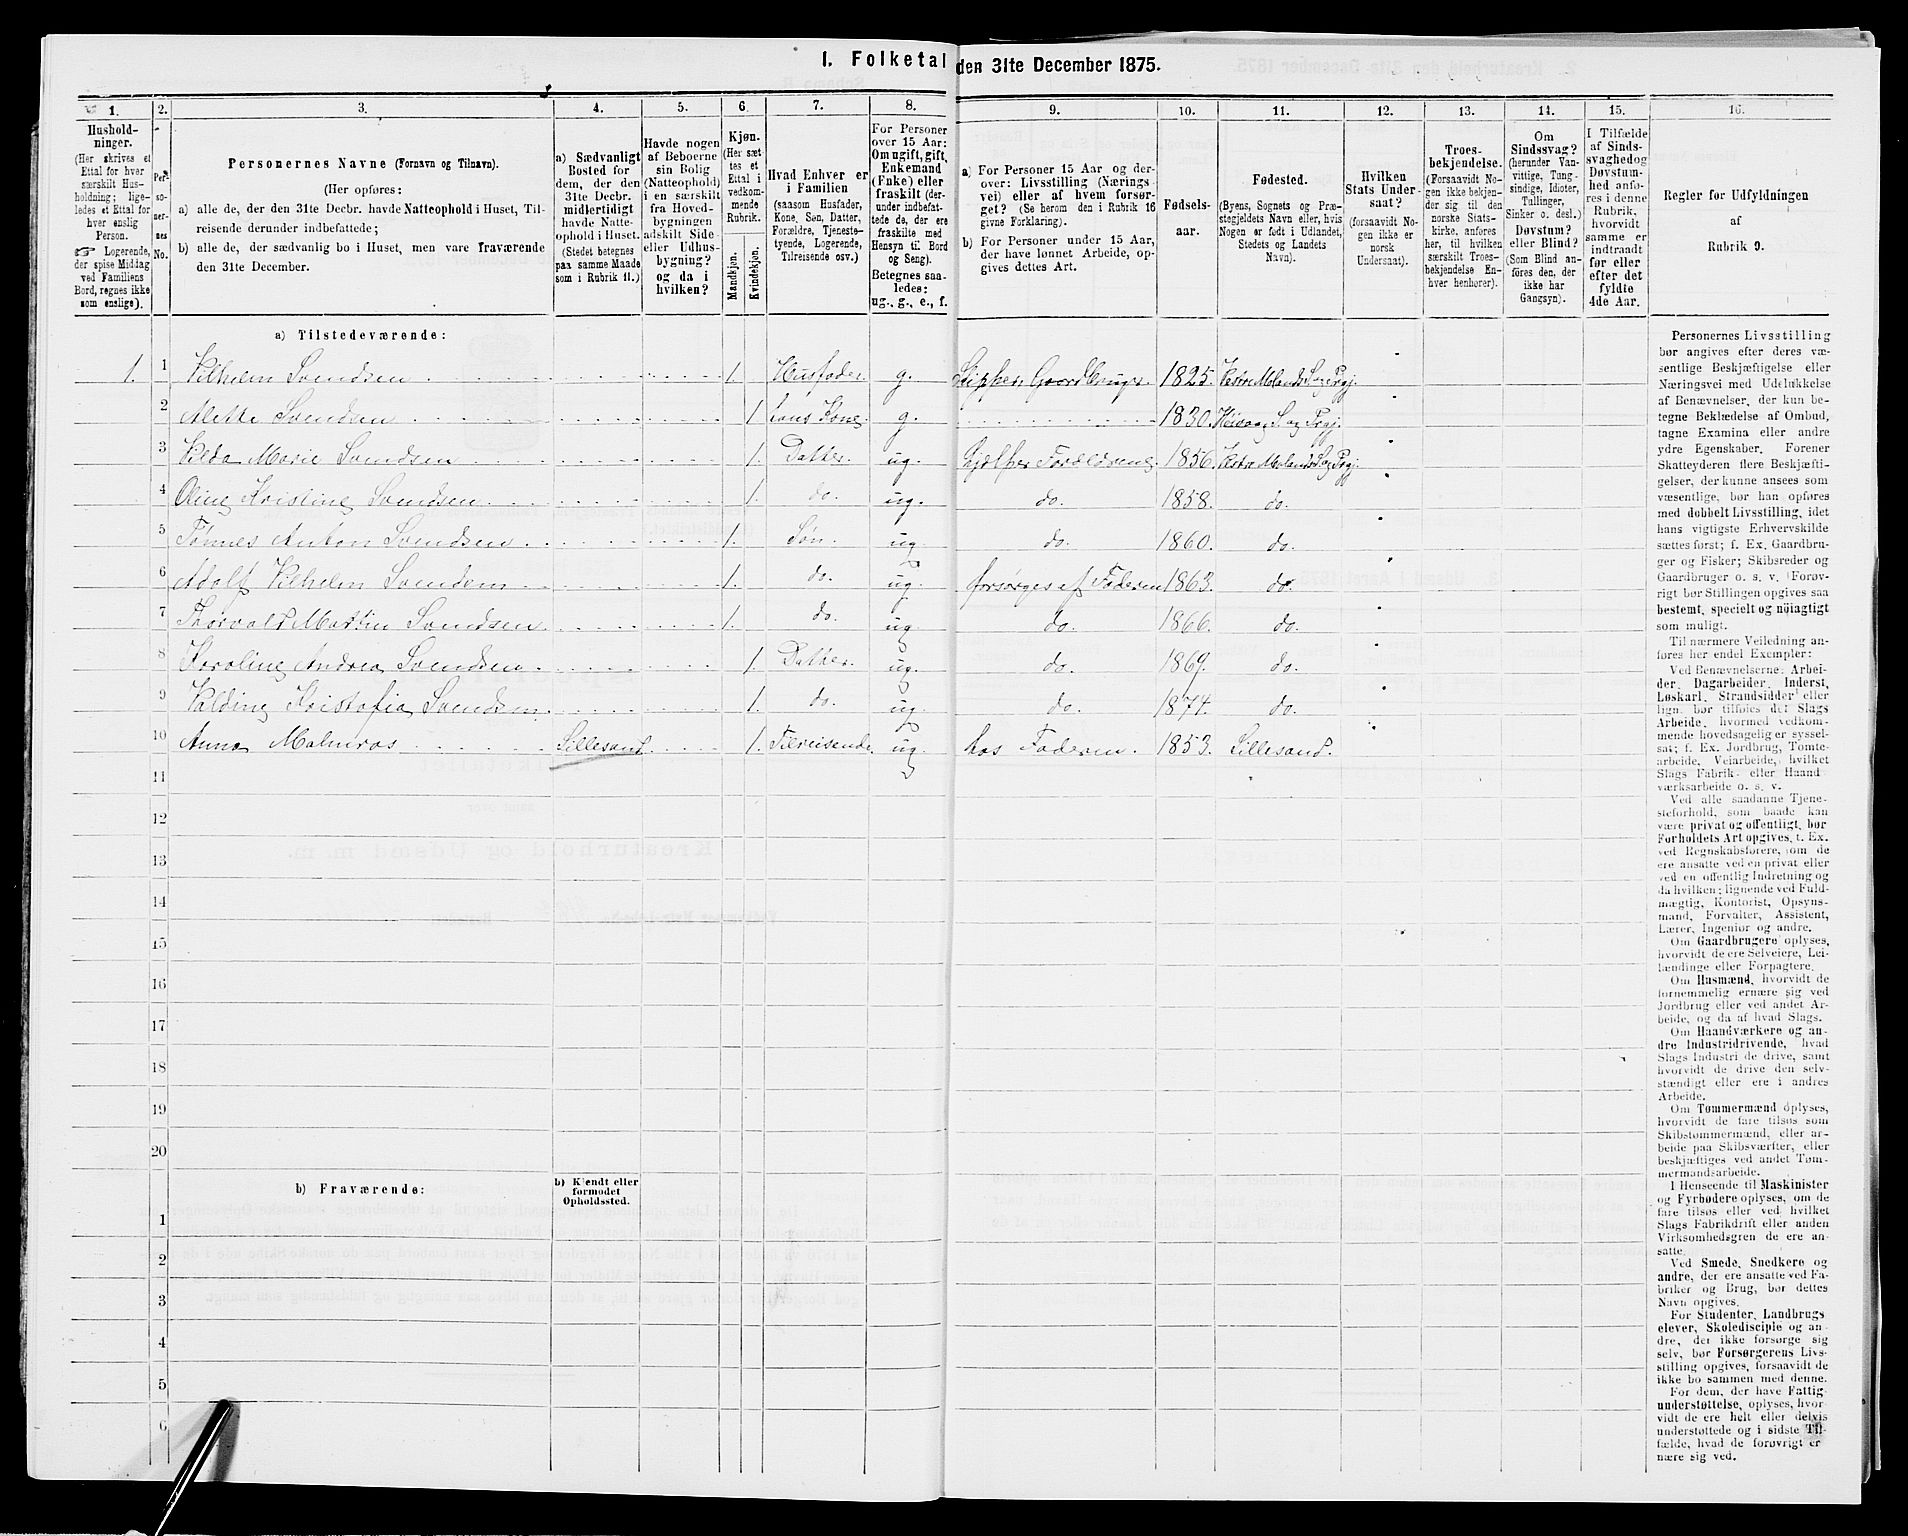 1. Folketal den 31te December 1875.
1. 2. 3. 4. 5. 6. 7. 8. 9. 10. 11. 12. 13. 14. 15. 16.
Hushold-
ninger.
(Her skrives et
Ettal for hver
særskilt Hus-
holdning; lige-
ledes et Ettal for
hver enslig
Person.
☞ Logerende,
der spise Middag
ved Familiens
Bord, regnes ikke
som enslige).
Per-
so-
ner-
nes
No.
Personernes Navne (Fornavn og Tilnavn).
(Her opføres:
a) alle de, der den 31te Decbr. havde Natteophold i Huset, Til-
reisende derunder indbefattede;
b) alle de, der sædvanlig bo i Huset, men vare fraværende
den 31te December.
a) Sædvanligt
Bosted for
dem, der den
31te Decbr.
midlertidigt
havde Natte-
ophold i Huset.
(Stedet betegnes
paa samme Maade
som i Rubrik 11.)
Havde nogen
af Beboerne
sin Bolig
(Natteophold)
i en særskilt
fra Hoved-
bygningen
adskilt Side-
eller Udhus-
bygning?
og da i
hvilken?
Kjøn.
(Her sæt-
tes et
Ettal i
vedkom-
mende
Rubrik.
Mandkjøn.
Kvindekjøn.
Hvad Enhver er
i Familien
(saasom Husfader,
Kone, Søn, Datter,
Forældre, Tjeneste-
tyende, Logerende,
Tilreisende osv.)
For Personer
over 15 Aar:
Om ugift, gift,
Enkemand
(Enke) eller
fraskilt (der-
under indbefat-
tede de, der ere
fraskilte med
Hensyn til Bord
og Seng).
Betegnes saa-
ledes:
ug., g., e., f.
a) For Personer 15 Aar og der-
over: Livsstilling (Nærings-
vei) eller af hvem forsør-
get? (Se herom den i Rubrik 16
givne Forklaring).
b) For Personer under 15 Aar,
der have lønnet Arbeide, op-
gives dettes Art.
Fødsels-
aar.
Fødested.
(Byens, Sognets og Præ-
stegjeldets Navn eller, hvis
Nogen er født i Udlandet,
Stedets og Landets
Navn).
Hvilken
Stats Under-
saat?
(forsaavidt No-
gen ikke er
norsk
Undersaat).
Troes-
bekjendelse.
(Forsaavidt No-
gen ikke bekjen-
der sig til den
norske Stats-
kirke, anføres
her, til hvilken
særskilt Troes-
bekjendelse En-
hver henhører).
Om
Sindssvag?
(herunder Van-
vittige, Tung-
sindige, Idioter,
Tullinger,
Sinker o. desl.)
Døvstum?
eller Blind?
(Som Blind an-
føres den, der
ikke har
Gangsyn).
I Tilfælde
af Sinds-
svaghed og
Døvstum-
hed anfø-
res i denne
Rubrik,
hvorvidt
samme er
indtraadt
før eller
efter det
fyldte
4de Aar.
Regler for Udfyldningen
af
Rubrik 9.
a) Tilstedeværende:
1. 1 Vilhelm Svendsen 1. Husfader g. Skipper Gaardbruger 1825. Vestre Molands S og Prgj.
2 Mette Svendsen 1. hans Kone g. 1830. Høivaag S. og Prgj.
3 Vilda Marie Svendsen 1. Datter. ug. hjælper Forældrene 1856. Vestre Molands S og Prgj.
4 Oline Kristine Svendsen 1. do. ug. do. 1858. do.
5 Tønnes Anton Svendsen 1. Søn. ug. do. 1860. do.
6 Adolf Vilhelm Svendsen 1. do. ug. forsørges af Faderen 1863. do.
7 Thorvald Martin Svendsen 1. do. ug. do. 1866. do.
8 Karoline Andrea Svendsen 1. Datter. ug. do. 1869. do.
9 Valdine Kristofia Svendsen 1. do. ug. do. 1874. do.
10 Anna Malmros Lillesand. 1. Tilreisende. ug hos Faderen. 1853. Lillesand.
11
12
13
14
15
16
17
18
19
20
b) Fraværende:
b) Kjendt eller
formodet
Opholdssted.
1
2
3
4
5
6
Personernes Livsstilling
bør angives efter deres væ-
sentlige Beskjæftigelse eller
Næringsvei med Udelukkelse
af Benævnelser, der kun be-
tegne Beklædelse af Ombud,
tagne Examina eller andre
ydre Egenskaber. Forener
Skatteyderen flere Beskjæfti-
gelser, der kunne ansees som
væsentlige, bør han opføres
med dobbelt Livsstilling, idet
hans vigtigste Erhvervskilde
sættes først; f. Ex. Gaardbru-
ger og Fisker; Skibsreder og
Gaardbruger o. s. v. (Forøv-
rigt bør Stillingen opgives saa
bestemt, specielt og nøiagtigt
som muligt.
Til nærmere Veiledning an-
føres her endel Exempler:
Ved Benævnelserne: Arbei-
der, Dagarbeider, Inderst,
Løskarl, Strandsidder eller
lign. bør tilføies det Slags
Arbeide, hvormed vedkom-
mende hovedsagelig er syssel-
sat; f. Ex. Jordbrug, Tomte-
arbeide, Veiarbeide, hvilket
Slags Fabrik- eller Haand-
værksarbeide o. s. v.
Ved alle saadanne Tjene-
steforhold, som baade kan
være privat og offentligt, bør
Forholdets Art opgives, t. Ex.
ved Regnskabsførere, om de
ere ansatte ved en privat eller
ved en offentlig Indretning og
da hvilken; lignende ved Fuld-
mægtig, Kontorist, Opsyns-
mand, Forvalter, Assistent,
Lærer, Ingeniør og andre.
Om Gaardbrugere oplyses,
hvorvidt de ere Selveiere, Lei-
lændinge eller Forpagtere.
Om Husmænd, hvorvidt de
fornemmelig ernære sig ved
Jordbrug eller ved andet Ar-
beide, og da af hvad Slags.
Om Haandværkere og an-
dre Industridrivende, hvad
Slags Industri de drive, samt
hvorvidt de drive den selv-
stændigt eller ere i andres
Arbeide.
Om Tømmermænd oplyses,
hvorvidt de fare tilsøs som
Skibstømmermænd, eller ar-
beide paa Skibsværfter, eller
beskjæftiges ved andet Tøm-
mermandsarbeide.
I Henseende til Maskinister
og Fyrbødere oplyses, om de
fare tilsøs eller ved hvilket
Slags Fabrikdrift eller anden
Virksomhedsgren de ere an-
satte.
Ved Smede, Snedkere og
andre, der ere ansatte ved Fa-
briker og Brug, bør dettes
Navn opgives.
For Studenter, Landbrugs-
elever, Skoledisciple og an-
dre, det ikke forsørge sig
selv, bør Forsørgerens Livs-
stilling opgives, forsaavidt de
ikke bo sammen med denne.
For dem, der have Fattig-
understøttelse, oplyses, hvor-
vidt de ere helt eller delvis
understøttede og i sidste Til-
fælde, hvad de forøvrigt er-
nære sig ved.